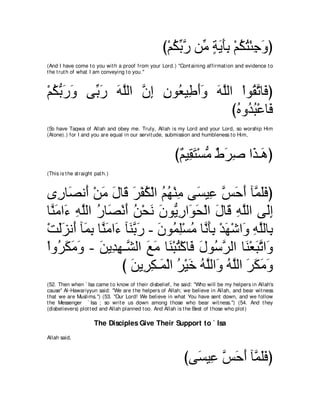 (وَجِئْتُكُمْ بِأَيَةٍ مِّن رَّبِّكُمْ)
(And I have come to you with a proof from your Lord.) "Containing affirmation and evidence to
the truth of what I am conveying to you."
(فَاتَّقُواْ اللَّهَ وَأَطِيعُونِ إِنَّ اللَّهَ رَبِّى وَرَبُّكُمْ
فَاعْبُدُوهُ)
(So have Taqwa of Allah and obey me. Truly, Allah is my Lord and your Lord, so worship Him
(Alone).) for I and you are equal in our servitude, submission and humbleness to Him,
(هَـذَا صِرَطٌ مُّسْتَقِيمٌ)
(This is the straight path.)
(فَلَمَّآ أَحَسَّ عِيسَى مِنْهُمُ الْكُفْرَ قَالَ مَنْ أَنصَارِى
إِلَى اللَّهِ قَالَ الْحَوَارِيُّونَ نَحْنُ أَنْصَارُ اللَّهِ ءَامَنَّا
بِاللَّهِ وَاشْهَدْ بِأَنَّا مُسْلِمُونَ - رَبَّنَآ ءَامَنَّا بِمَآ أَنزَلَتْ
وَاتَّبَعْنَا الرَّسُولَ فَاكْتُبْنَا مَعَ الشَّـهِدِينَ - وَمَكَرُواْ
وَمَكَرَ اللَّهُ وَاللَّهُ خَيْرُ الْمَـكِرِينَ )
(52. Then when `Isa came to know of their disbelief, he said: "Who will be my helpers in Allah's
cause" Al-Hawariyyun said: "We are the helpers of Allah; we believe in Allah, and bear witness
that we are Muslims.") (53. "Our Lord! We believe in what You have sent down, and we follow
the Messenger `Isa ; so write us down among those who bear witness.") (54. And they
(disbelievers) plotted and Allah planned too. And Allah is the Best of those who plot)
The Disciples Give Their Support to `Isa
Allah said,
(فَلَمَّآ أَحَسَّ عِيسَى)